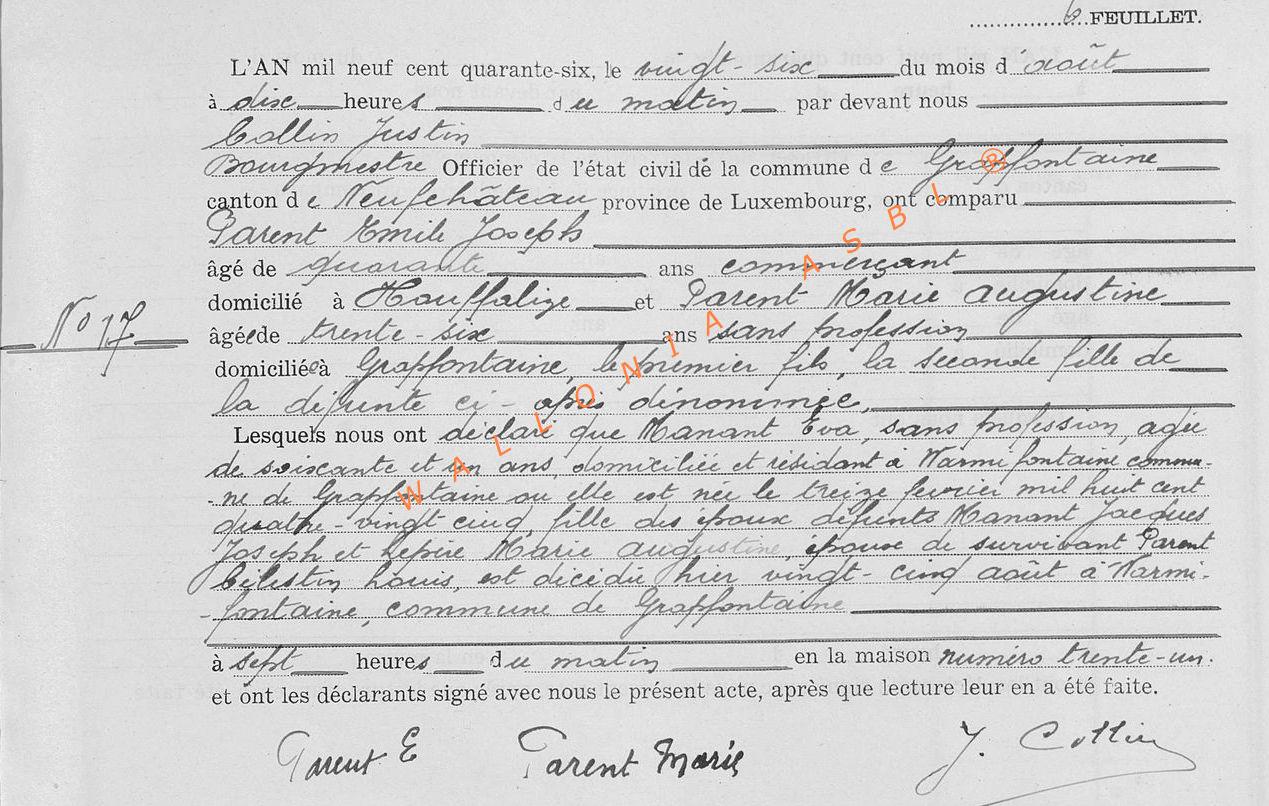 6 FEUILLET.
L'AN mil neuf cent quarante-six, le vingt-six du mois d'août
à dix heures du matin par devant nous
Collin Justin
Bourgmestre Officier de l'état civil de la commune de Grapfontaine
canton de Neufchâteau province de Luxembourg, ont comparu
Parent Emile Joseph
âgé de quarante ans commerçant
domicilié à Houffalize et Parent Marie Augustine
No 17
âgée de trente-six ans sans profession
domiciliée à Grapfontaine, le premier fils, la seconde fille de
la défunte ci-après dénommée,
Lesquels nous ont déclaré que Manant Eva, sans profession, agée
de soixante et un ans, domiciliée et résidant à Warmifontaine commu-
-ne de Grapfontaine ou elle est née le treize fevrier mil huit cent
quatre-vingt cinq fille des époux défunts Manant Jacques
Joseph et Lepère Marie Augustine, épouse de survivant Parent
Célestin Louis, est décédée hier vingt-cinq août à Warmi-
-fontaine, commune de Grapfontaine
à sept heures du matin en la maison numéro trente-un.
et ont les déclarants signé avec nous le présent acte, après que lecture leur en a été faite.
Parent E Parent Marie J. Collin
WALLONIA ASBL ®